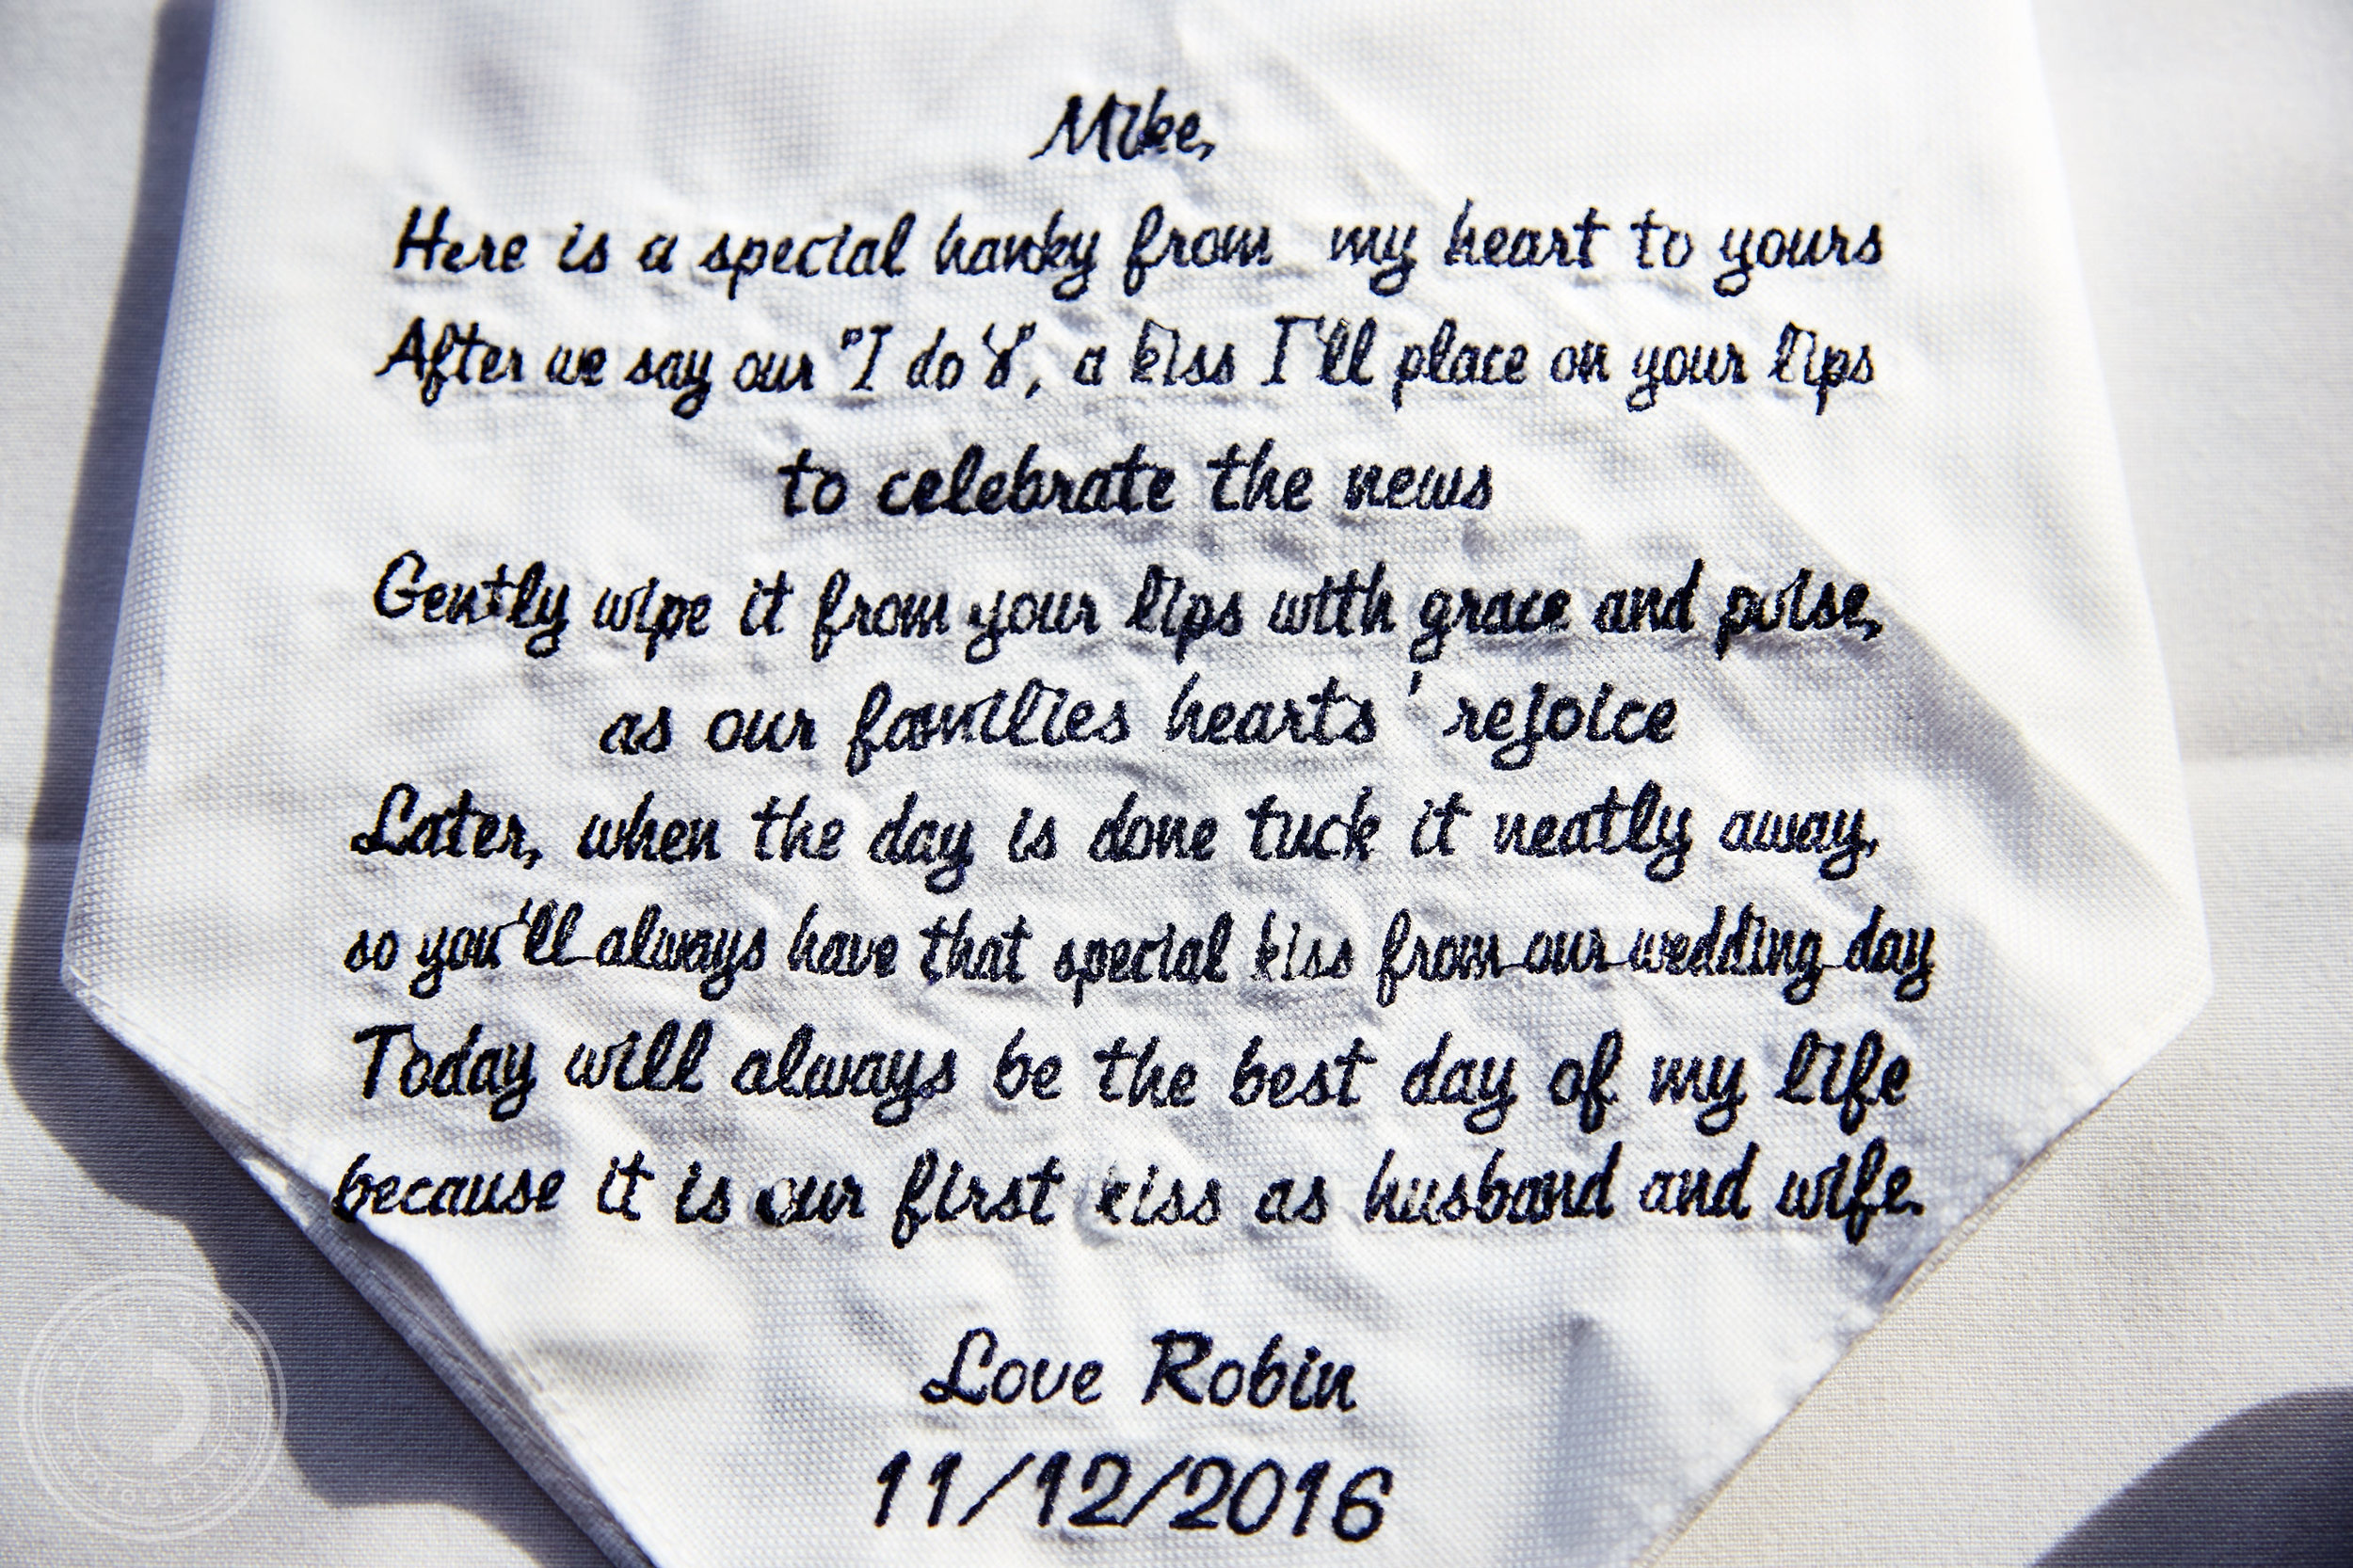 Mike,
Here is a special hanky from my heart to yours
After we say our "I do's", a kiss I'll place on your lips
to celebrate the news
Gently wipe it from your lips with grace and poise,
as our families hearts' rejoice
Later, when the day is done tuck it neatly away,
so you'll always have that special kiss from our wedding day
Today will always be the best day of my life
because it is our first kiss as husband and wife.
Love Robin
11/12/2016